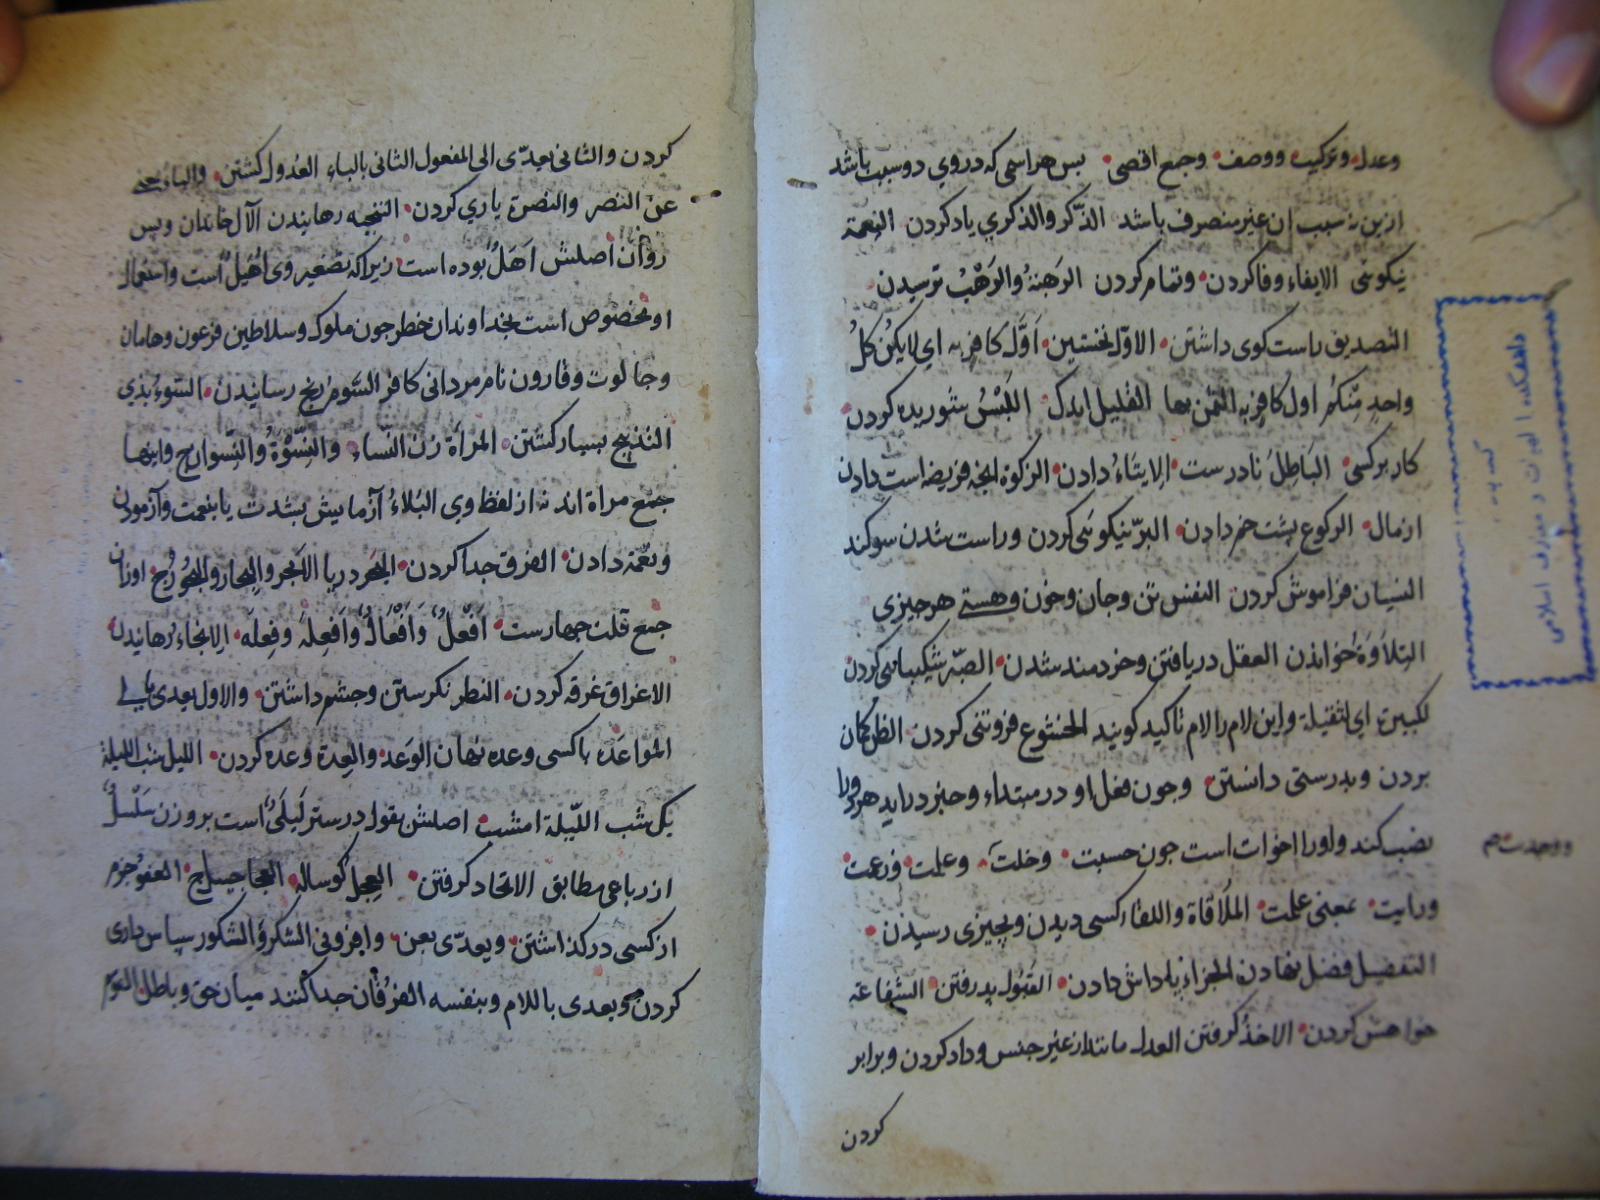 وعدل وتركيب ووصف وجمع اقصى پس هر اسمى كه در وي دو سبب باشد
ازين نه سبب ان غير منصرف باشد الذّكر والذكري ياد كردن النعمة
نيكوئى الايفاء وفا كردن وتمام كردن الرَهبَةُ والرَهْبُ ترسيدن
التصديق راست كوى داشتن الاوّل نخستين اَوَّل كافر به اي لا يكن كلُ
واحدٍ مّنكم اول كافر به الثمن بها القليل اندك اللَبْسُ شوريده كردن
كار بر كسى البَاطِل نادرست الايتَاءُ دادن الزكوة انچه فريضه است دادن
از مال الركوع پشت خم دادن البرّ نيكوئى كردن وراست شدن سوكند
النسيان فراموش كردن النفس تن وجان وخون وهستى هر چيزى
التِلاَوَةُ خواندن العقل دريافتن وخردمند شدن الصبر شكيبائى كردن
لكبيرة اي لثقيلة واين لام را لام تاكيد كويند الخشوع فروتنى كردن الظن كمان
بردن وبدرستى دانستن وچون فعل او در مبتداء وخبر درايد هر دو را
نصب كند واورا اخوات است چون حسبت وخلت وعلمت وزعمت
ورايت بمعنى علمت المُلاقاة واللقاء كسى ديدن وبچيزى رسيدن
ووجدت هم
التفضيل فضل نهادن الجزاء پاداش دادن القبُول پذرفتن الشفاعة
خواهش كردن الاخذ كرفتن العدل مانند از غير جنس وداد كردن وبرابر
كردن
كردن والثانى يعدّى الى المفعول الثانى بالباء العُدول كشتن والباء بمعنى
عن النصر والنصرة ياري كردن التنجيه رهانيدن الآل خاندان وپس
روان اصلش اَهَلٌ بوده است زيرا كه تصغير وى اُهَيل است واستعمال
او مخصوص است بخداوندان خطر چون ملوك وسلاطين فرعون وهامان
وجالوت وقارون نام مردانى كافر السَوم رنج رسانيدن السُوء بذي
التذبيح بسيار كشتن المراَة زن النّساء والنِسْوَةُ والنِسْوا ن ج واينها
جمع مراة اند نه از لفظ وي البَلاءُ آزمايش بشدت يا بنعمت وآزمودن
ونعمة دادن الفرق جدا كردن البَحر دريا الاَبحر والبِحار والبُحُور ج اوزان
جمع قلت چهارست اَفْعُلٌ وَاَفْعَالٌ وَاَفعِلةٌ وفِعلَه الانجاء رهانيدن
الاغراق غرقه كردن النظر نكرستن وچشم داشتن والاول يعدى بالى
المواعَده با كسى وعده نهادن الوَعد والعِدة وعده كردن الليل شب الليلة
يك شب اللّيلة امشب اصلش بقول درستر لَيلَىٌ است بر وزن سَلسلٌ
از رباعى مطابق الاتخاد كرفتن العِجل كوساله العجاجيل ج العفو جرم
از كسى در كذاشتن ويعدّى بعن وافزونى الشكر والشكور سپاس دارى
كردن ويعدى باللام وبنفسه الفرقان جدا كننده ميان حق وباطل القوم
دانشكده الهيات و معارف اسلامى